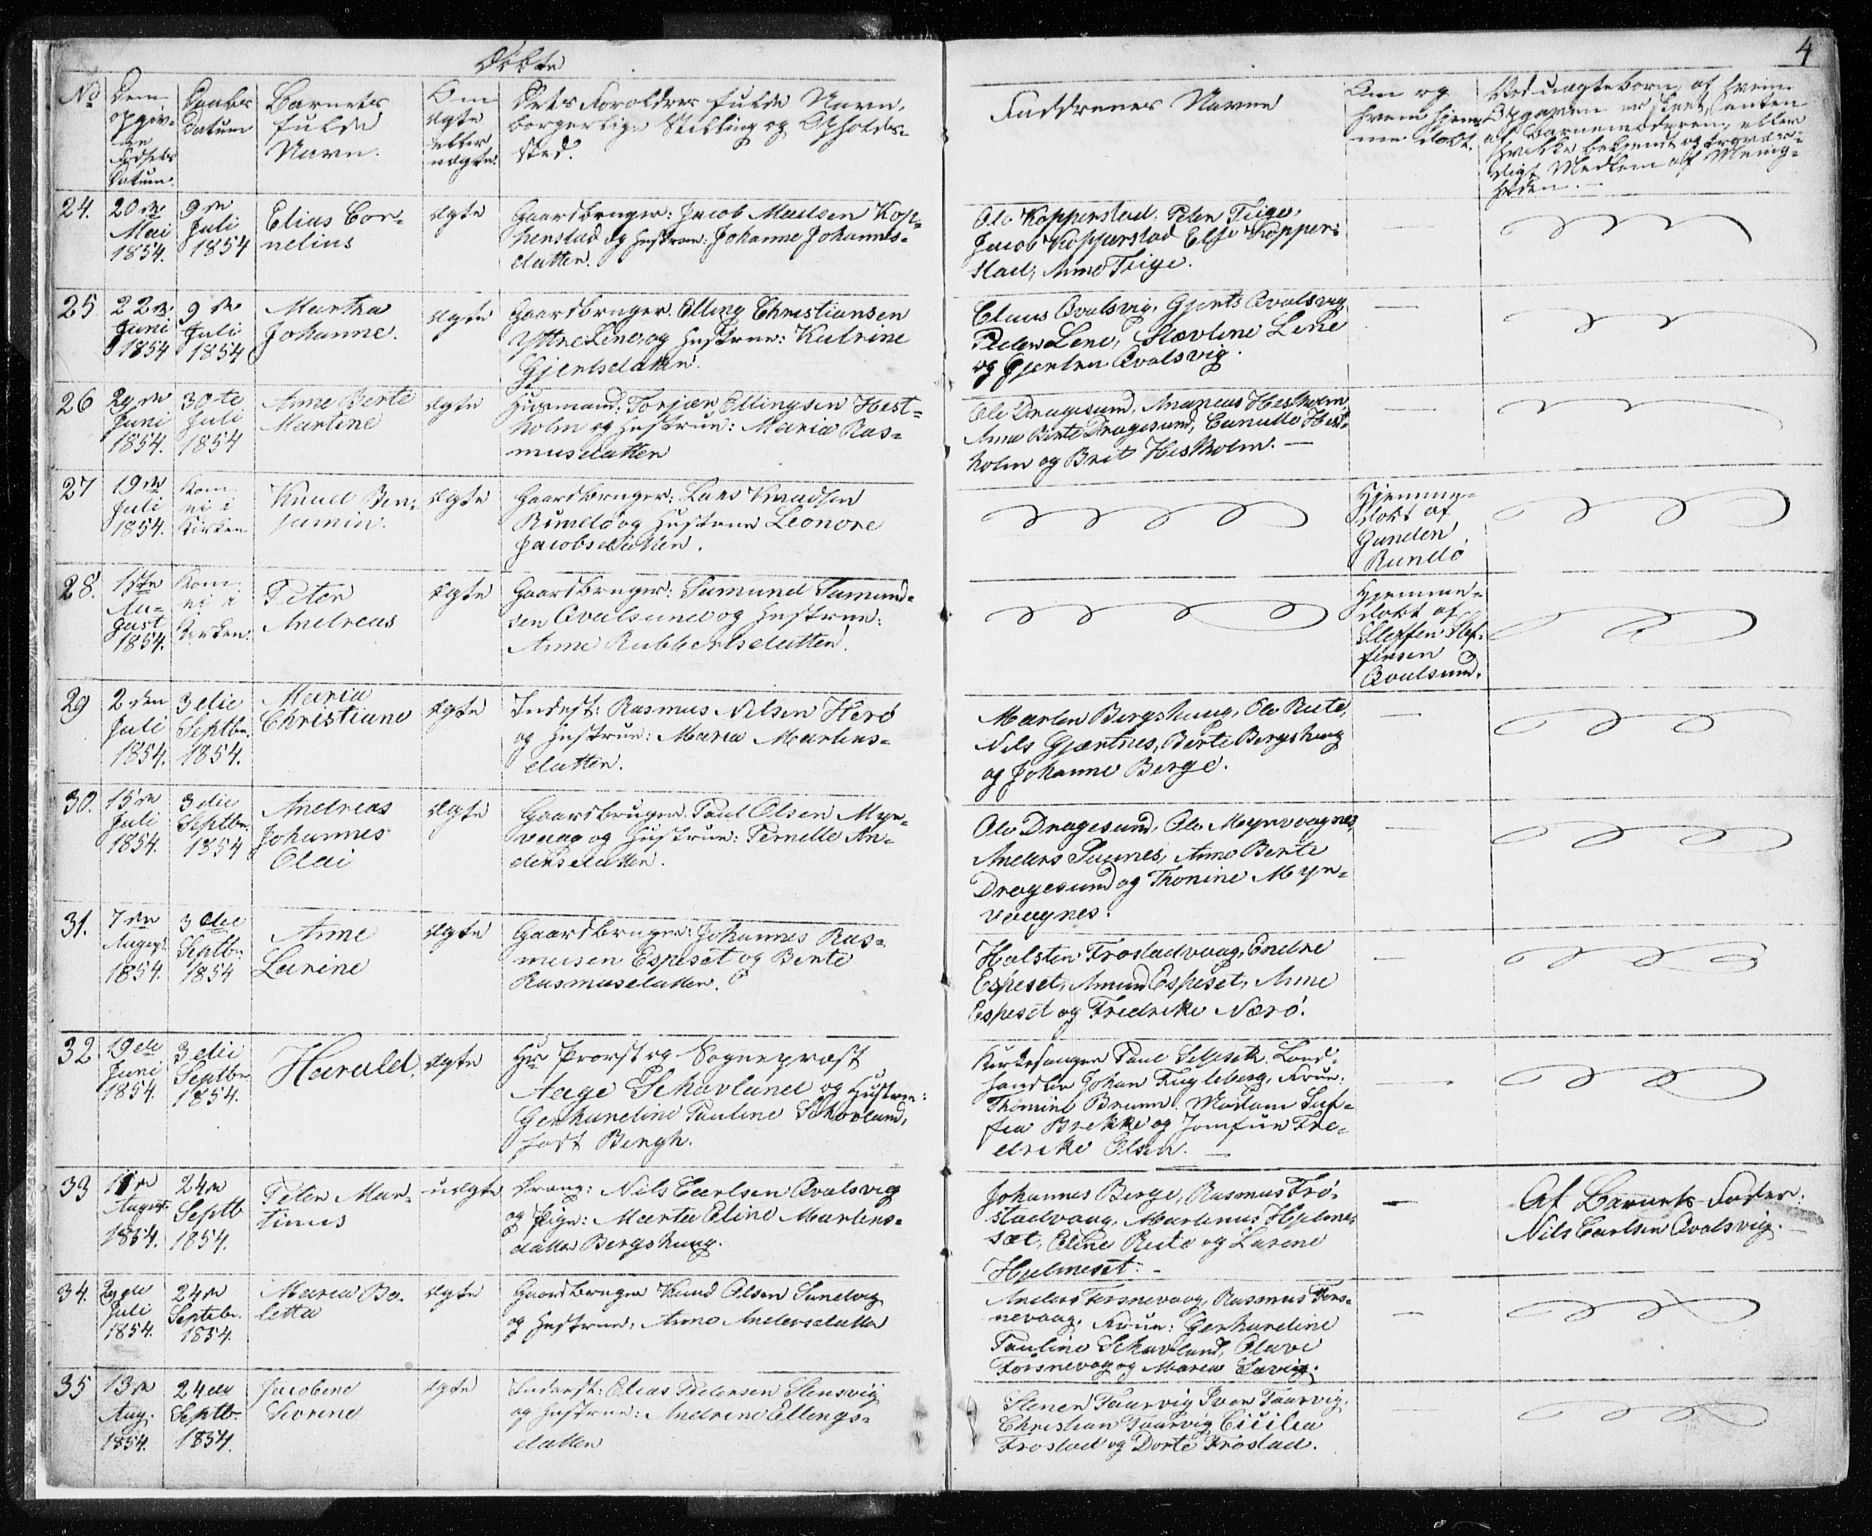 Døbte
4
No
Den opgivne Fødsels Datum.
Daabs Datum
Barnets fulde Navn.
Om ægte eller uægte.
Dets Foræld​res fulde Navn, borgerlige Stilling og Opholdssted.
Faddrenes Navne
Om og hvem hjemmedøbt.
24.
20de
Mai
1854.
9de
Juli
1854
Elias Cor-
nelius
ægte
Gaardbruger: Jacob Madsen Kop-
penstad og Hustrue: Johanne Johannes-
datter.
Ole Kopperstad, Peter Teige,
Jacob Kopperstad Else Kopper-
stad, Anne Teige.
25
22de
Juni
1854
9de
Juli
1854
Martha
Johanne.
ægte
Gaardbruger. Elling Christiansen
Yttre Line, og Hustrue: Katrine
Gjertsdatter.
Claus Qvalsvig, Gjerts Qvalsvig
Peder Lene, Lene
og Gjertru Qvalsvig.
26
29de
Juni
1854.
30te
Juli
1854
Anne Berte
Martine
ægte
Husmand: Torjær Ellingsen Hest-
holm og Hustrue: Maria Ras-
musdatter
Ole Dragesund, Ananias Hestholm,
Anne Berte Dragesund, Hest-
holm og Brit Hestholm. —
27
19de
Juli
1854.
Kom
ei i
Kirken
Knud Ben-
jamin.
ægte
Gaardbruger: Lars Knudsen
Rundø og Hustrue Leonore
Jacobsdatter.
Hjemme-
døbt af
Rundø
28.
1ste
Au-
gust
1854.
Kom
ei i
Kirken.
Peter
Andreas
ægte
Gaardbruger: Samund Samund-
sen Qvalsund og Hustrue:
Anne Rubbertsdatter.
Hjemme-
døbt af
Steffen Stef-
fensen
Qvalsund.
29
2den
Juli
1854.
3die
Septbr.
1854.
Maria
Christiane
ægte
Inderst: Rasmus Nilsen Herø
og Hustrue: Maria Martens-
datter.
Marten Bergshaug, Ole Rute,
Nils Gjertnes, Berte Bergshaug
og Johanne Berge.
30.
15de
Juli
1854.
3die
Septbr.
1854
Andreas
Johannes
Olai
ægte
Gaardbruger. Paul Olsen Myr-
vaag og Hustrue: Pernelle An-
dersdatter.
Ole Dragesund, Ole Myrvaagnes,
Anders Saunes, Anne Berte
Dragesund og Thonine Myr-
vaagnes.
31.
7de
August
1854.
3die
Septb:
1854
Anne
Larine
ægte
Gaardbruger: Johannes Ras-
musen Espeset og Berte
Rasmusdatter.
Halsten Frostadvaag, Endre
Espeset, Amund Espeset, Anne
Espeset og Fredrike Nærø.
32
19de
Juni
1854.
3die
Septbr
1854.
Harald.
ægte
Hr Provst og Sognepræst
Aage Schavland og Hustrue:
Gerhardine Pauline Schavland,
født Bergh.
Kirkesanger Paul Selsset, Land-
handler Johan Fugleberg, Frue:
Thomine Brunn. Madam Sof-
fia Brekke og Jomfrue Fre-
drike Olsen. —
33
11te
August
1854.
24de
Septb
1854.
Peter Mar-
tinus
uægte
Dreng: Nils Carlsen Qvalsvig
og Pige: Marta Eline Martens-
datter Bergshaug.
Johannes Berge, Rasmus Fro-
stadvaag, Martinus Hjelme-
sæt, Eline Rute og Larene
Hjelmeset. -
Af Barnets Fader.
Nils Carlsen Qvalsvig. —
34.
29de
Juli
1854.
24de
Septbr.
1854.
Maria Bo-
letta
ægte
Gaardbruger Knud Olsen Sandvig
og Hustrue: Anne Andersdatter
Anders Torsnevaag, Rasmus Tors-
nevaag, Frue: Gerhardine
Pauline Schavland, Olave
Torsnevaag og Maren Savig.
35
13de
Aug.
1854.
24de
Septb
1854.
Jacobine
Severine
ægte
Inderst: Elias Pedersen Stensvig
og Hustrue: Andrine Ellings-
datter
Stener Taarvig Iver Taarvig,
Christian Taarvig Cicilia
Frostad og Dorte Frostad.